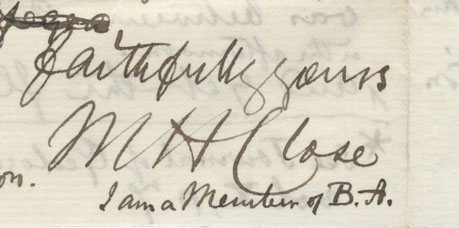 faithfully yours
M H Close
on.
I am a Member of B.A.